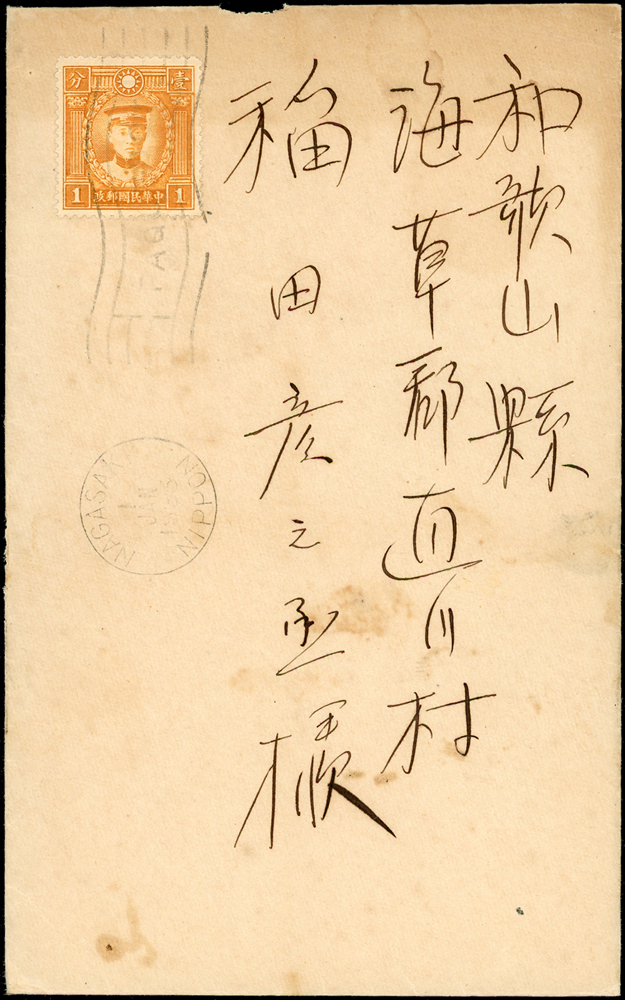 和歌山縣
海草郡直川村
稲田彦之丞様
分 壹
1 中華民國郵政 1
PAQ
NAGASAKI NIPPON
JAN